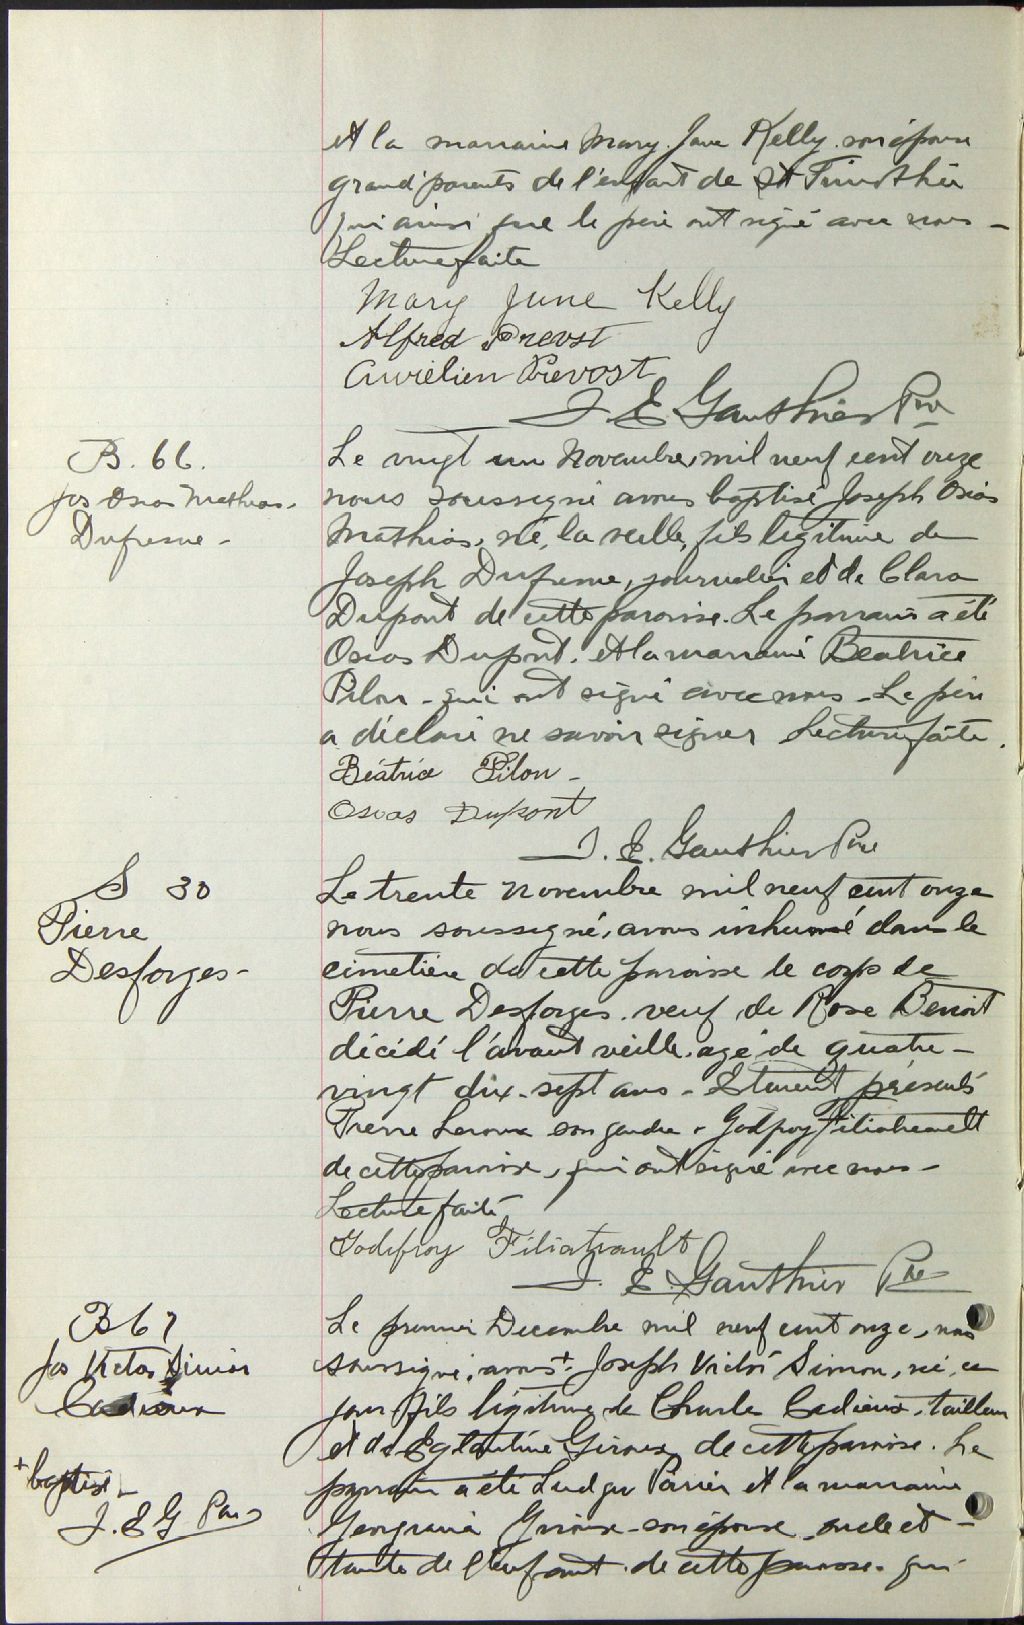 et la marraine Mary Jane Kelly son épouse
grand'parents de l'enfant de St Timothée
qui ainsi que le père ont signé avec nous -
Lecture faite
Mary June Kelly
Alfred Prevost
Aurielien Prevost
J. E. Gauthier Ptre
B. 66.
Jos Osias Mathias -
Dufresne -
Le vingt un Novembre, mil neuf cent onze
nous soussigné avons baptisé Joseph Osias
Mathias, né, la veille, fils légitime de
Joseph Dufresne, journalier et de Clara
Dupont de cette paroisse. Le parrain a été
Osias Dupont. et la marraine Béatrice
Pilon - qui ont signé avec nous - Le père
a déclaré ne savoir signer Lecture faite.
Béatrice Pilon -
Osias Dupont
J. E. Gauthier Ptre
S 30
Pierre
Desforges -
Le trente novembre mil neuf cent onze
nous soussigné, avons inhumé dans le
cimetière de cette paroisse le corps de
Pierre Desforges. veuf de Rose Benoit
décédé l'avant veille. agé de quatre -
vingt dix-sept ans - Etaient présents
Pierre Leroux son gendre & Godfroy Filiatreault
de cette paroisse, qui ont signé avec nous -
Lecture faite
Godefroy Filiatrault
J. E. Gauthier Ptre
B 67
Jos Victor Simon
Cadieux
+ baptisé
J. E G Ptre
Le premier Decembre mil neuf cent onze, nous
soussigné, avons + Joseph Victor Simon, né, ce
jour fils légitime de Charle Cadieux, tailleur
et de Eglantine Giroux, de cette paroisse. Le
parrain a été Ludger Poirier et la marraine
Georgiana Giroux - son épouse oncle et -
tante de l'enfant de cette paroisse. qui